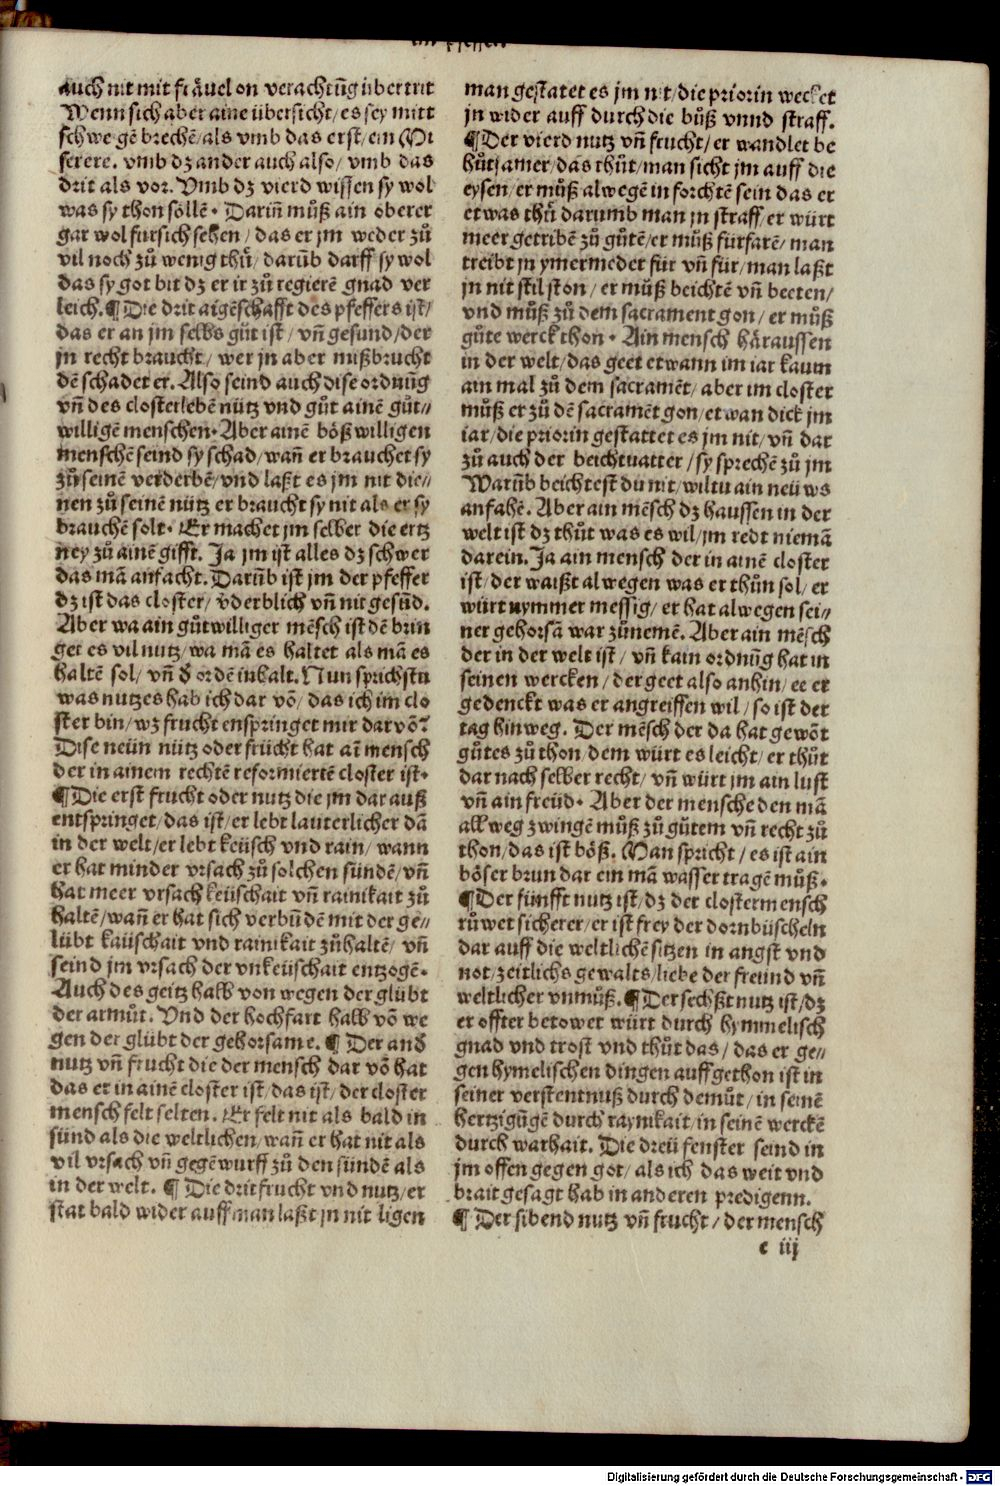 auch nit mit fräuel on verachtũg übertrit
Wenn sich aber aine übersicht/ es sey mitt
schwegẽ brechẽ/ als vmb das erst/ ein Mi
serere. vmb dz ander auch also/ vmb das
drit als vor. Vmb dz vierd wissen sy wol
was sy thon söllẽ. Darin̄ můß ain oberer
gar wol fürsich sehen/ das er jm weder zů
vil noch zů wenig thü/ darũb darff sy wol
das sy got bit dz er ir zů regierẽ gnad ver
leich. ¶ Die drit aigẽschafft des pfeffers ist/
das er an jm selbs gůt ist/ vñ gesund/ der
jn recht braucht/ wer jn aber mißbrucht
dẽ schadet er. Also seind auch dise ordnũg
vñ des closterlebẽ nütz vnd gůt ainẽ gůt⸗
willigẽ menschen. Aber ainẽ böß willigen
menschẽ seind sy schad/ wañ er brauchet sy
zů seinẽ verderbẽ/ vnd laßt es jm nit die⸗
nen zů seinẽ nütz er braucht sy nit als er sy
brauchẽ solt. Er machet jm selber die ertz
ney zů ainẽ gifft. Ja jm ist alles dz schwer
das mã anfacht. Darũb ist jm der pfeffer
dz ist das closter/ v̾derblich vñ nit gesũd.
Aber wa ain gůtwilliger mẽsch ist dẽ brin
get es vil nutz/ wa mã es haltet als mã es
haltẽ sol/ vñ d̾ ordẽ inhalt. Nun sprichstu
was nutzes hab ich dar võ/ das ich im clo
ster bin/ wz frucht enspringet mir dar võ?
Dise neün nütz oder frücht hat aĩ mensch
der in ainem rechtẽ reformiertẽ closter ist.
¶ Die erst frucht oder nutz die jm dar auß
entspringet/ das ist/ er lebt lauterlicher dã
in der welt/ er lebt keüsch vnd rain/ wann
er hat minder vrsach zů solchen sündẽ/ vñ
hat meer vrsach keüschait vñ rainikait zů
haltẽ/ wañ er hat sich verbũdẽ mit der ge⸗
lübt kaüschait vnd rainikait zůhaltẽ/ vñ
seind jm vrsach der vnkeüschait entzogẽ.
Auch des geitz halb von wegen der glübt
der armůt. Vnd der hochfart halb võ we
gen der glübt der gehorsame. ¶ Der and̾
nutz vñ frucht die der mensch dar võ hat
das er in ainẽ closter ist/ das ist/ der closter
mensch felt selten. Er felt nit als bald in
sünd als die weltlichen/ wañ er hat nit als
vil vrsach vñ gegẽwurff zů den sündẽ als
in der welt. ¶ Die drit frucht vnd nutz/ er
stat bald wider auff man laßt jn nit ligen
man gestatet es jm nit/ die priorin wecket
jn wider auff durch die bůß vnnd straff.
¶ Der vierd nutz vñ frucht/ er wandlet be
hůtsamer/ das thůt/ man sicht jm auff die
eysen/ er můß alwegẽ in forchtẽ sein das er
etwas thü darumb man jn straff/ er würt
meer getribẽ zů gůtẽ/ er můß fürfarẽ/ man
treibt jn ymermeder für vñ für/ man laßt
jn nit stil ston/ er můß beichtẽ vñ beeten/
vnd můß zů dem sacrament gon/ er můß
gůte werck thon. Ain mensch häraussen
in der welt/ das geet etwann im iar kaum
ain mal zů dem sacramẽt/ aber im closter
můß er zů dẽ sacramẽt gon/ etwan dick jm
iar/ die priorin gestattet es jm nit/ vñ dar
zů auch der beichtuatter/ sy sprechẽ zů jm
Warũb beichtest du nit/ wiltu ain neüws
anfahẽ. Aber ain mẽsch dz haussen in der
welt ist dz thůt was es wil/ jm redt niemã
darein. Ja ain mensch der in ainẽ closter
ist/ der waißt alwegen was er thůn sol/ er
würt nymmer messig/ er hat alwegen sei⸗
ner gehorsã war zůnemẽ. Aber ain mẽsch
der in der welt ist/ vñ kain ordnũg hat in
seinen wercken/ der geet also anhin/ ee er
gedenckt was er angreiffen wil/ so ist der
tag hinweg. Der mẽsch der da hat gewõt
gůtes zů thon/ dem würt es leicht/ er thůt
dar nach selber recht/ vñ würt jm ain lust
vñ ain freüd. Aber der mensche den mã
allweg zwingẽ můß zů gůtem vñ recht zů
thon/ das ist böß. Man spricht/ es ist ain
böser brun dar ein mã wasser tragẽ můß.
¶ Der fünfft nutz ist/ dz der clostermensch
růwet sicherer/ er ist frey der dornbüscheln
dar auff die weltlichẽ sitzen in angst vnd
not/ zeitlichs gewalts/ liebe der freund vñ
weltlicher vnmůß. ¶ Der sechßt nutz ist/ dz
er offter betower würt durch hymmelisch
gnad vnd trost vnd thůt das/ das er ge⸗
gen hymelischen dingen auffgethon ist in
seiner verstentnuß durch demůt/ in seinẽ
hertzigũgẽ durch raynikait/ in seinẽ werckẽ
durch warhait. Die dreü fenster seind in
jm offen gegen got/ als ich das weit vnd
brait gesagt hab in anderen predigenn.
¶ Der sibend nutz vñ frucht/ der mensch
c iij
Digitalisierung gefördert durch die Deutsche Forschungsgemeinschaft - DFG